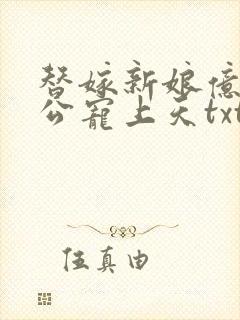 替嫁新娘億
公寵上天txt
伍真由